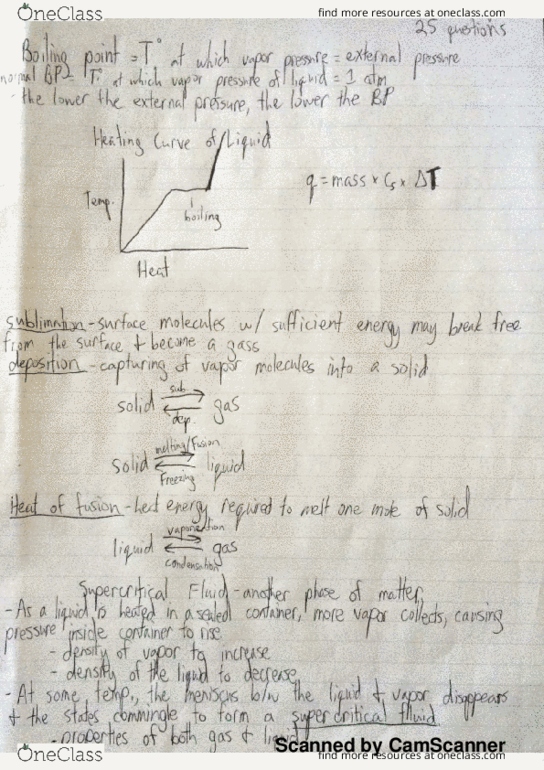 OneClass
find more resources at oneclass.com
25 questions
Boiling point = T° at which vapor pressure = external pressure
normal BP = T° at which vapor pressure of liquid = 1 atm
- the lower the external pressure, the lower the BP
Heating Curve of Liquid
q = mass × Cs × ΔT
Temp.
boiling
Heat
sublimation - surface molecules w/ sufficient energy may break free
from the surface + become a gass
deposition - capturing of vapor molecules into a solid
solid sub. dep. gas
solid melting/fusion freezing liquid
Heat of fusion - heat energy required to melt one mole of solid
liquid vaporization condensation gas
Supercritical Fluid - another phase of matter
- As a liquid is heated in a sealed container, more vapor collects, causing
pressure inside container to rise
- density of vapor to increase
- density of the liquid to decrease
- At some temp., the meniscus b/w the liquid + vapor disappears
+ the states commingle to form a supercritical fluid
- properties of both gas + liquid
Scanned by CamScanner
OneClass
find more resources at oneclass.com